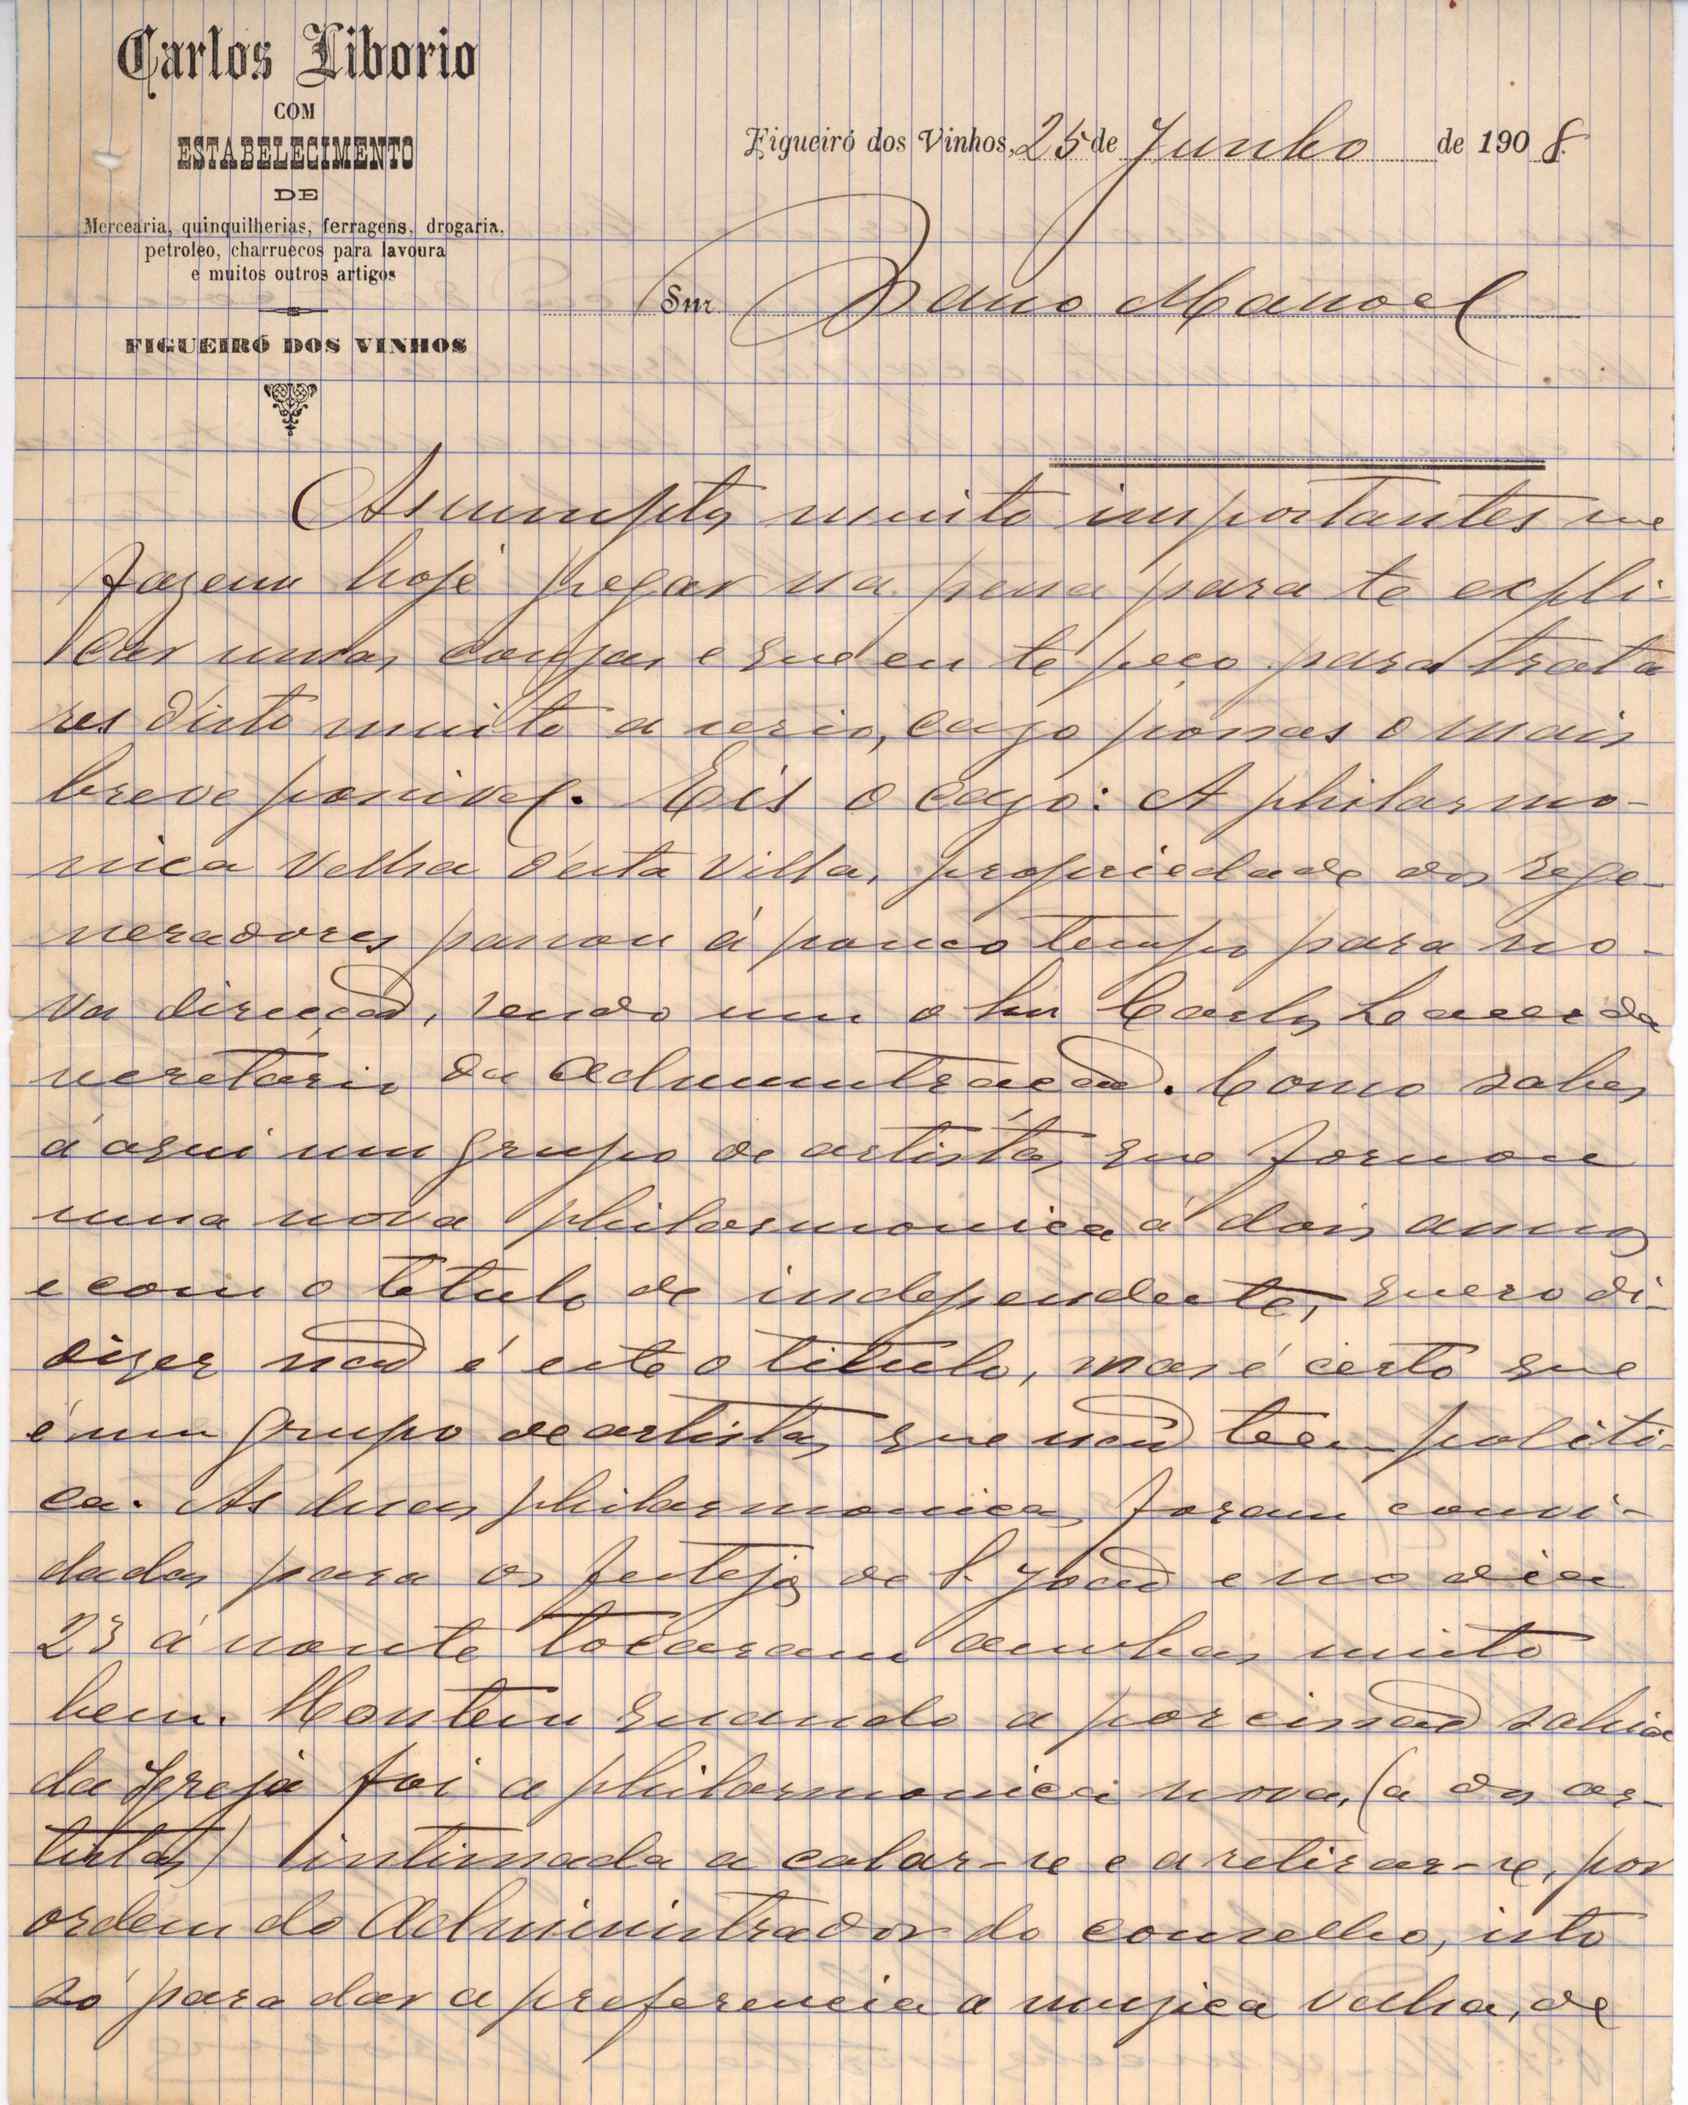 Carlos Liborio
COM
ESTABELECIMENTO
DE
Mercearia, quinquilherias, ferragens, drogaria,
petroleo, charruecos para lavoura
e muitos outros artigos
FIGUEIRÓ DOS VINHOS
Figueiró dos Vinhos, 25 de Junho de 1908
Snr. Mano Manoel
Assumptos muito importantes me
fazem hoje pegar na penna para te expli-
car umas coujas e que eu te peço para trata
res d'isto muito a serio, cazo possas o mais
breve possivel. Eis o cazo: A philarmo-
nica Velha d'esta Villa, propriedade dos rege-
neradores passou á pouco tempo para no-
va direcção, sendo um o Snr Carlos Lacerda
secretario da Administração. Como sabes
á aqui um grupo de artistas que formou
uma nova philarmonica á dois annos
e com o titulo de independente, quero di-
dizer não é este o titulo, mas é certo que
é um grupo de artistas que não teem politi-
ca. As duas philarmonicas foram convi-
dadas para os festejos de S. João e no dia
23 á noute tocaram ambas muito
bem. Hontem quando a porcissão sahia
da Igreja foi a philarmonica nova, (a dos ar-
tistas) intimada a calar-se e a retirar-se, por
ordem do Administrador do conselho, isto
só para dar a preferencia a muzica velha, de